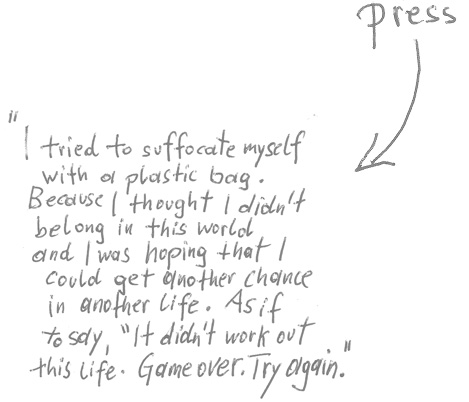 Press
"I tried to suffocate myself
with a plastic bag.
Because I thought I didn't
belong in this world
and I was hoping that I
could get another chance
in another life. As if
to say, "It didn't work out
this life. Game over. Try again."